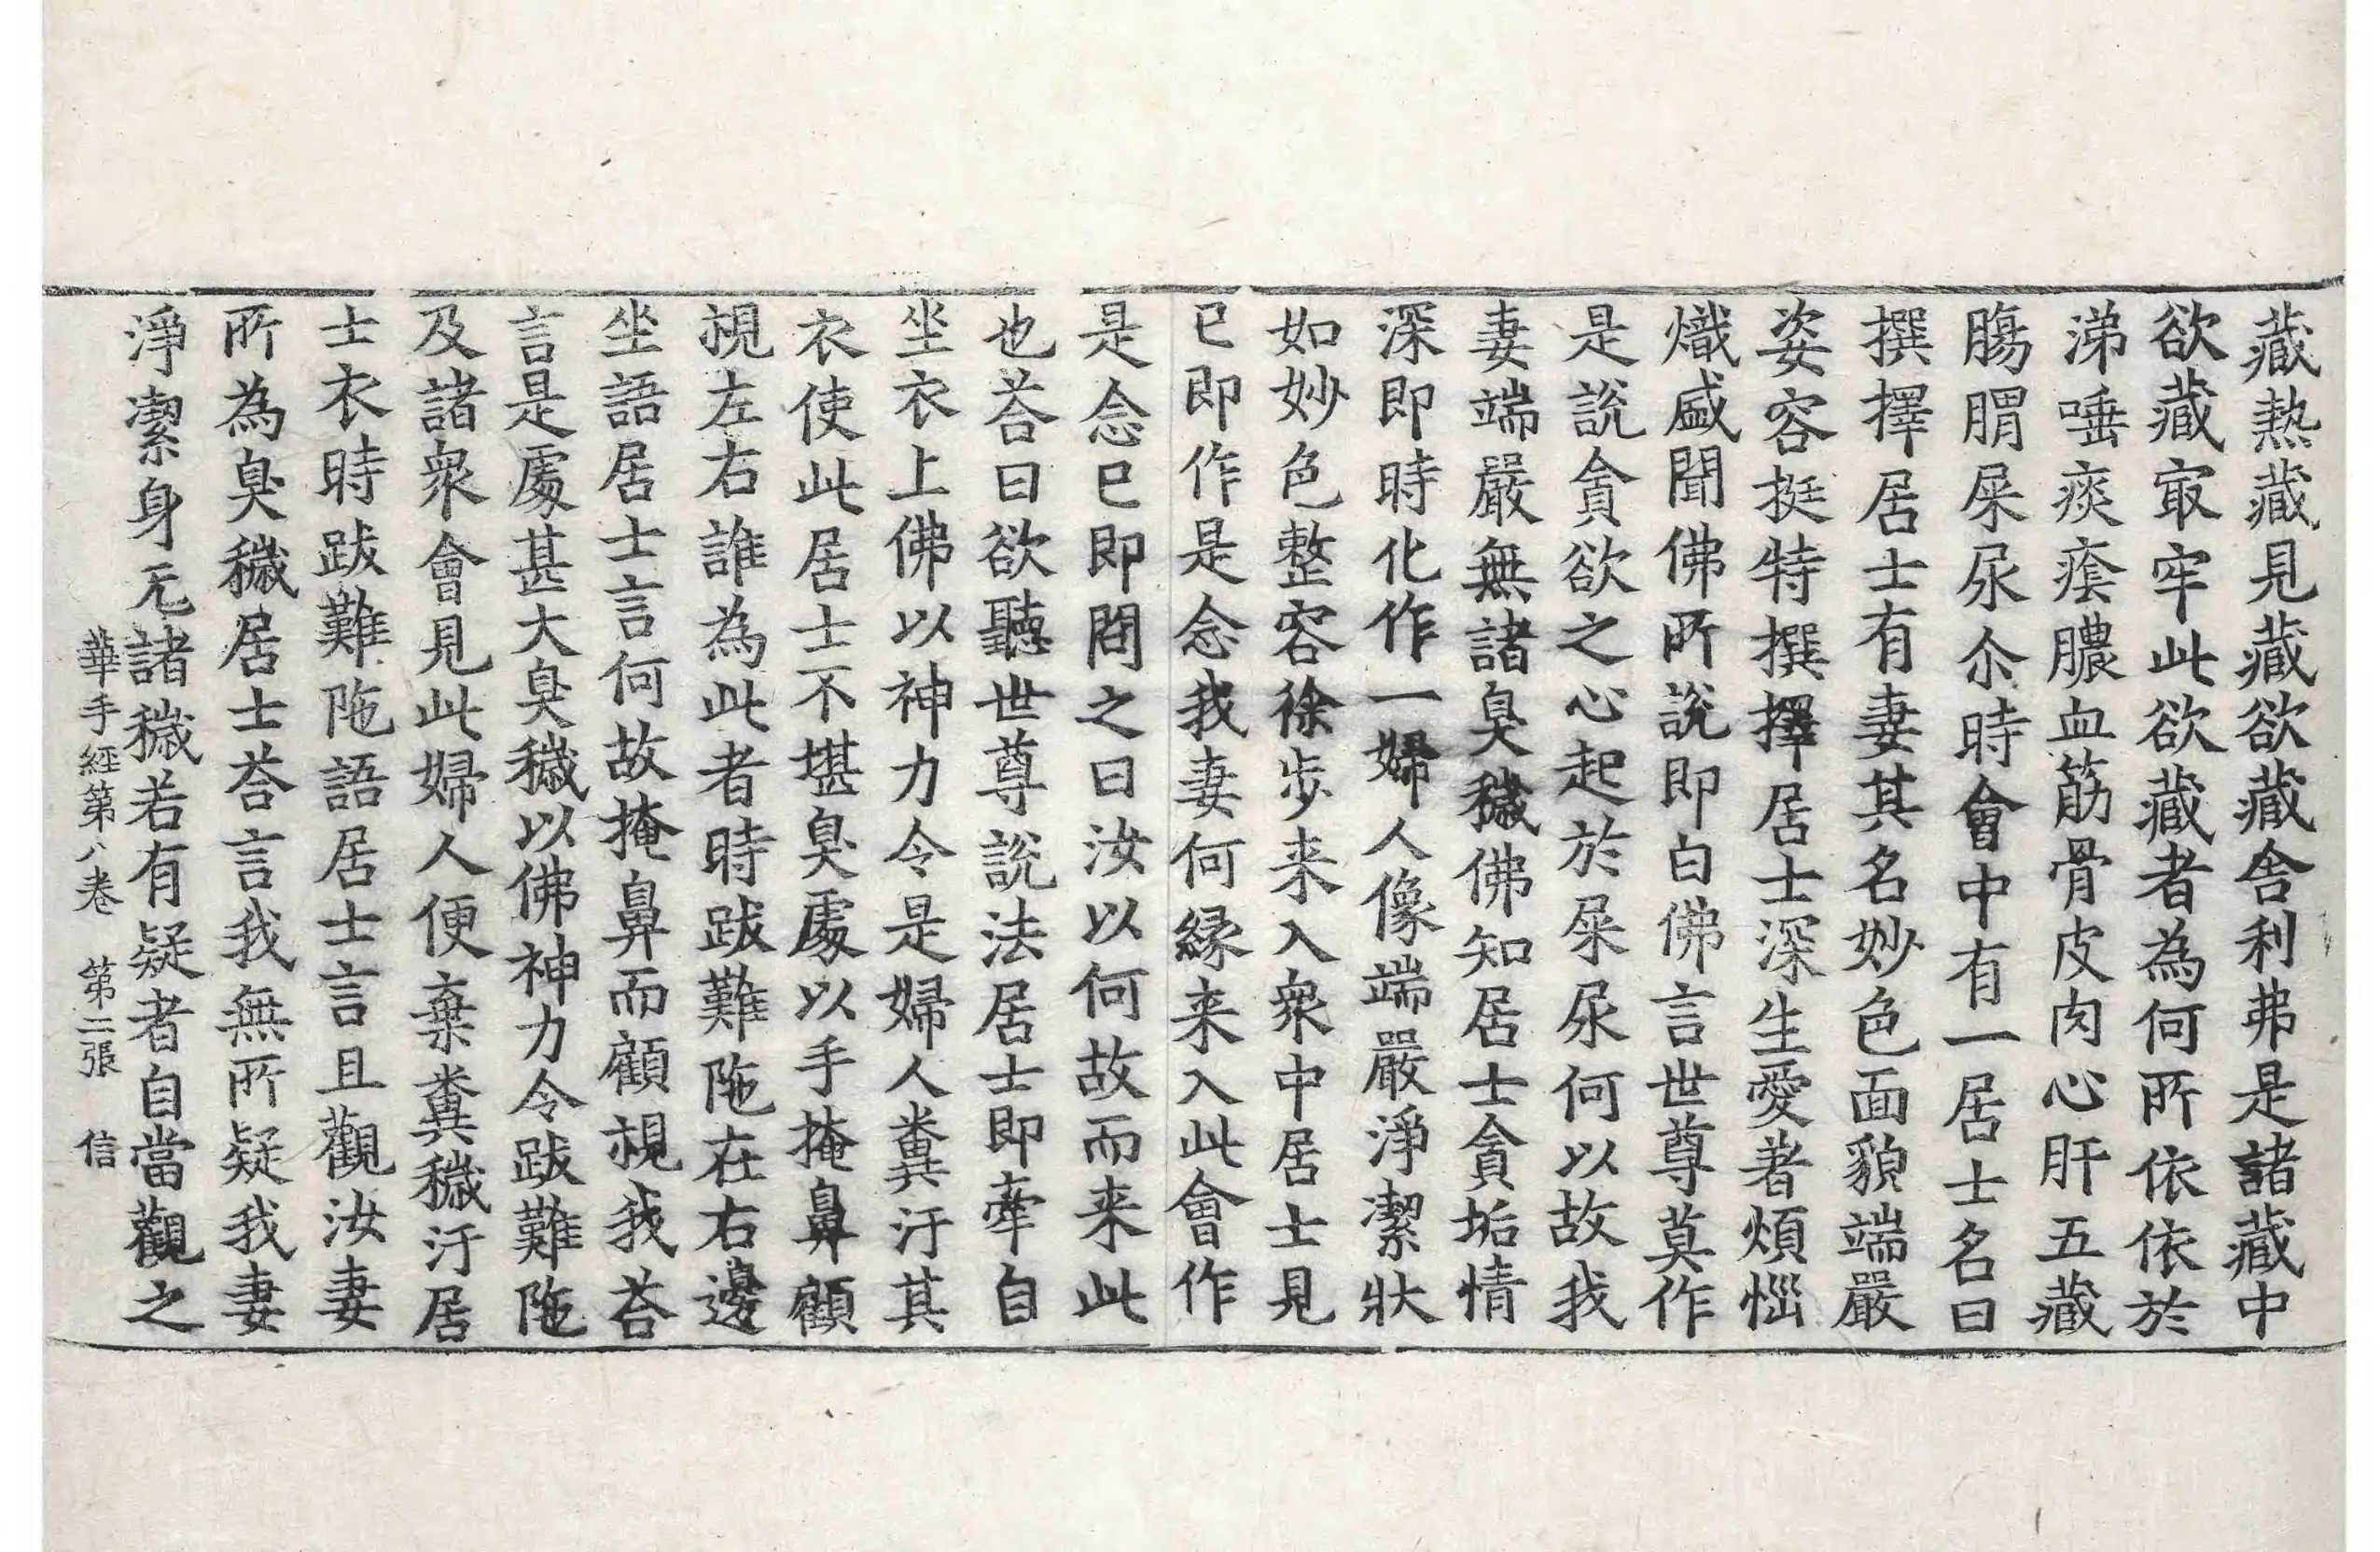 藏熱藏見藏欲藏舍利弗是諸藏中
欲藏㝡牢此欲藏者為何所依依於
涕唾痰癊膿血筋骨皮肉心肝五藏
腸胃屎尿尒時會中有一居士名曰
撰擇居士有妻其名妙色面貌端嚴
姿容挺特撰擇居士深生愛著煩惱
熾盛聞佛所說即白佛言世尊莫作
是說貪欲之心起於屎尿何以故我
妻端嚴無諸臭穢佛知居士貪垢情
深即時化作一婦人像端嚴淨潔狀
如妙色整容徐步来入衆中居士見
已即作是念我妻何縁来入此會作
是念已即問之曰汝以何故而来此
也荅曰欲聽世尊說法居士即牽自
坐衣上佛以神力令是婦人糞汙其
衣使此居士不堪臭處以手掩鼻顧
視左右誰為此者時跋難陁在右邊
坐語居士言何故掩鼻而顧視我荅
言是處甚大臭穢以佛神力令跋難陁
及諸衆會見此婦人便棄糞穢汙居
士衣時跋難陁語居士言且觀汝妻
所為臭穢居士荅言我無所疑我妻
淨潔身无諸穢若有疑者自當觀之
華手經第八卷 第二張 信